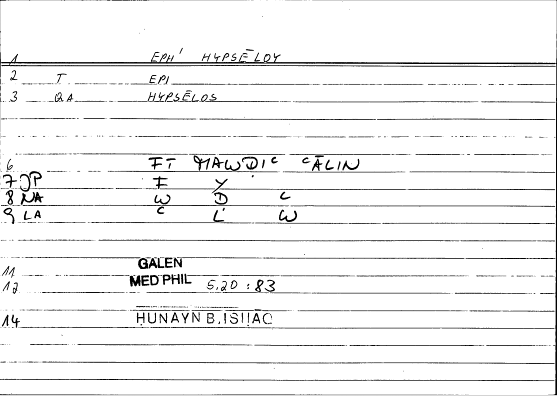 1 EPH' HYPSĒLOY
2 T EPI
3 QA HYPSĒLOS
6 FĪ MAWḌIᶜ ᶜĀLIN
7 JP F Y
8 NA W Ḍ C
9 LA C L W
11 GALEN
12 MED PHIL 5.20 : 83
14 HUNAYN B. ISHAQ